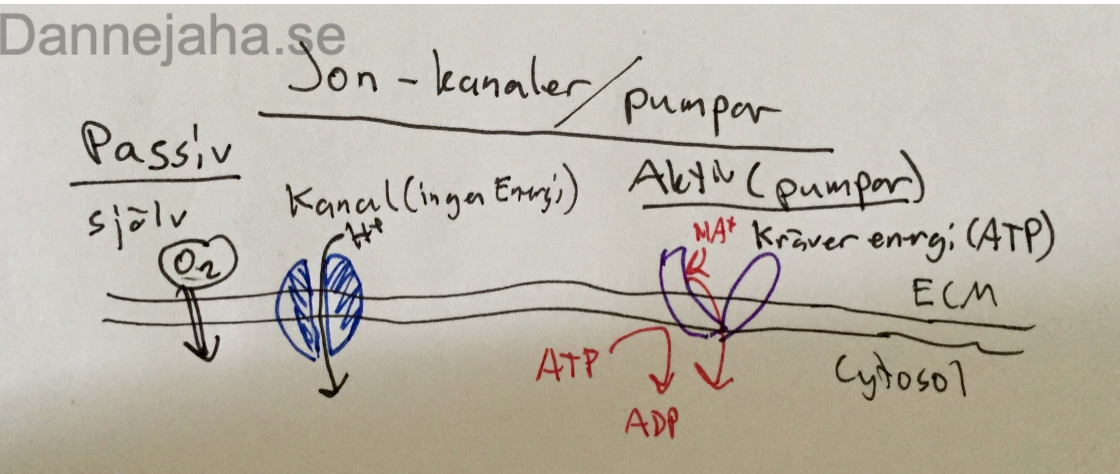 Dannejaha.se
Jon-kanaler/pumpar
Passiv
själv
O2
Kanal (ingen Energi)
H+
Aktiv (pumpar)
Kräver energi (ATP)
MA+
ECM
ATP
ADP
Cytosol